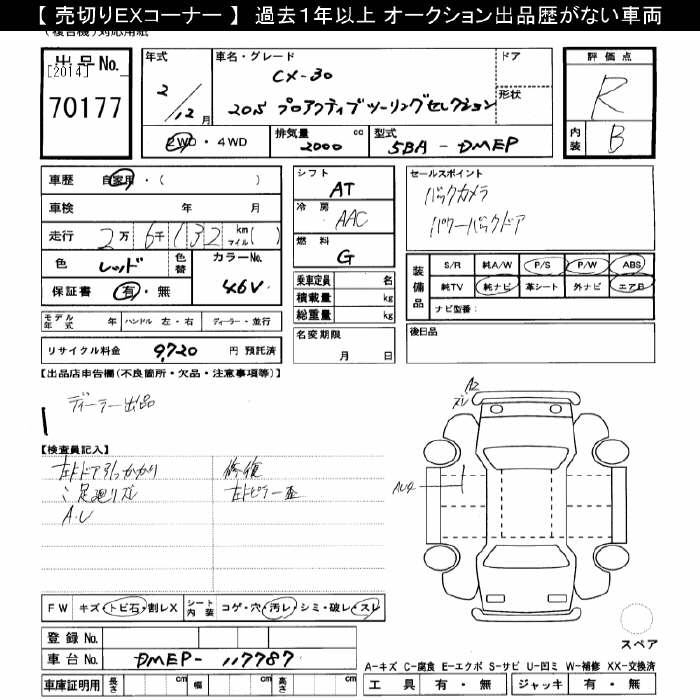 【 売切りEXコーナー 】 過去1年以上 オークション出品歴がない車両
(複合機)対応用紙
出品No.
[2014]
70177
年式
2/12月
車名・グレード
CX-30
20S プロアクティブツーリングセレクション
ドア
形状
2WD ・ 4WD
排気量
2000 cc
型式
5BA - DMEP
評価点
R
内装
B
車歴 自家用 ・ ( )
車検 年 月
走行 2万6千132 km マイル( )
色 レッド
色替
カラーNo.
46V
保証書 有 ・ 無
モデル年式 年 ハンドル 左 ・ 右 ディーラー ・ 並行
リサイクル料金 9,720 円 預託済
シフト
AT
冷房
AAC
燃料
G
乗車定員 名
積載量 kg
総重量 kg
名変期限
月 日
セールスポイント
バックカメラ
パワーバックドア
装備品
S/R 純A/W P/S P/W ABS
純TV 純ナビ 革シート 外ナビ エアB
ナビ型番:
後日品
【出品店申告欄(不良箇所・欠品・注意事項等)】
ディーラー出品
【検査員記入】
左ドア引っかかり
足廻りズレ
A.U
修復
A2
AU2
FW キズ・トビ石・割レX
シート内装 コゲ・穴・汚レ・シミ・破レ・スレ
登録 No.
車台 No. DMEP- 117787
車庫証明用 長さ cm 幅 cm 高さ cm
スペア
A-キズ C-腐食 E-エクボ S-サビ U-凹ミ W-補修 XX-交換済
工具 有 ・ 無 ジャッキ 有 ・ 無